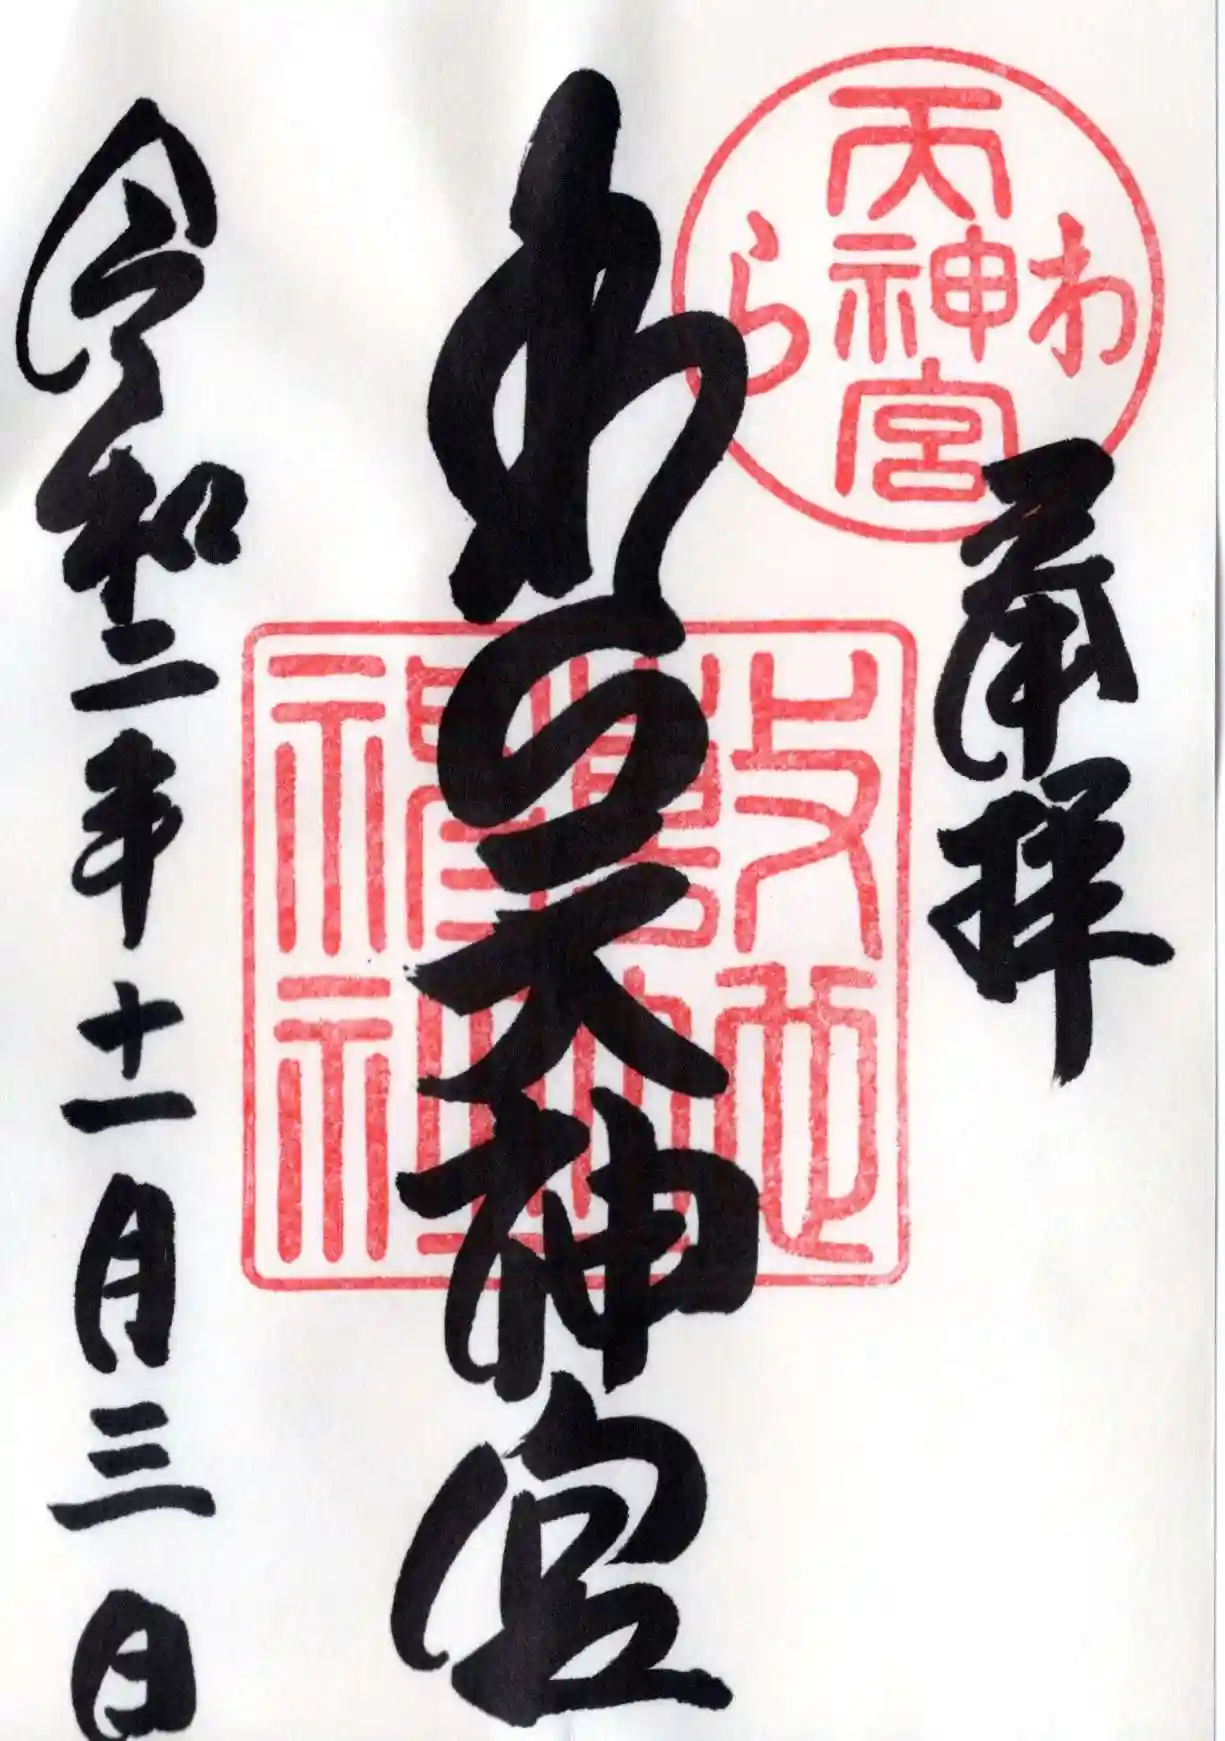 奉拝
わら天神宮
令和二年十一月三日
わら
天神宮
敷地